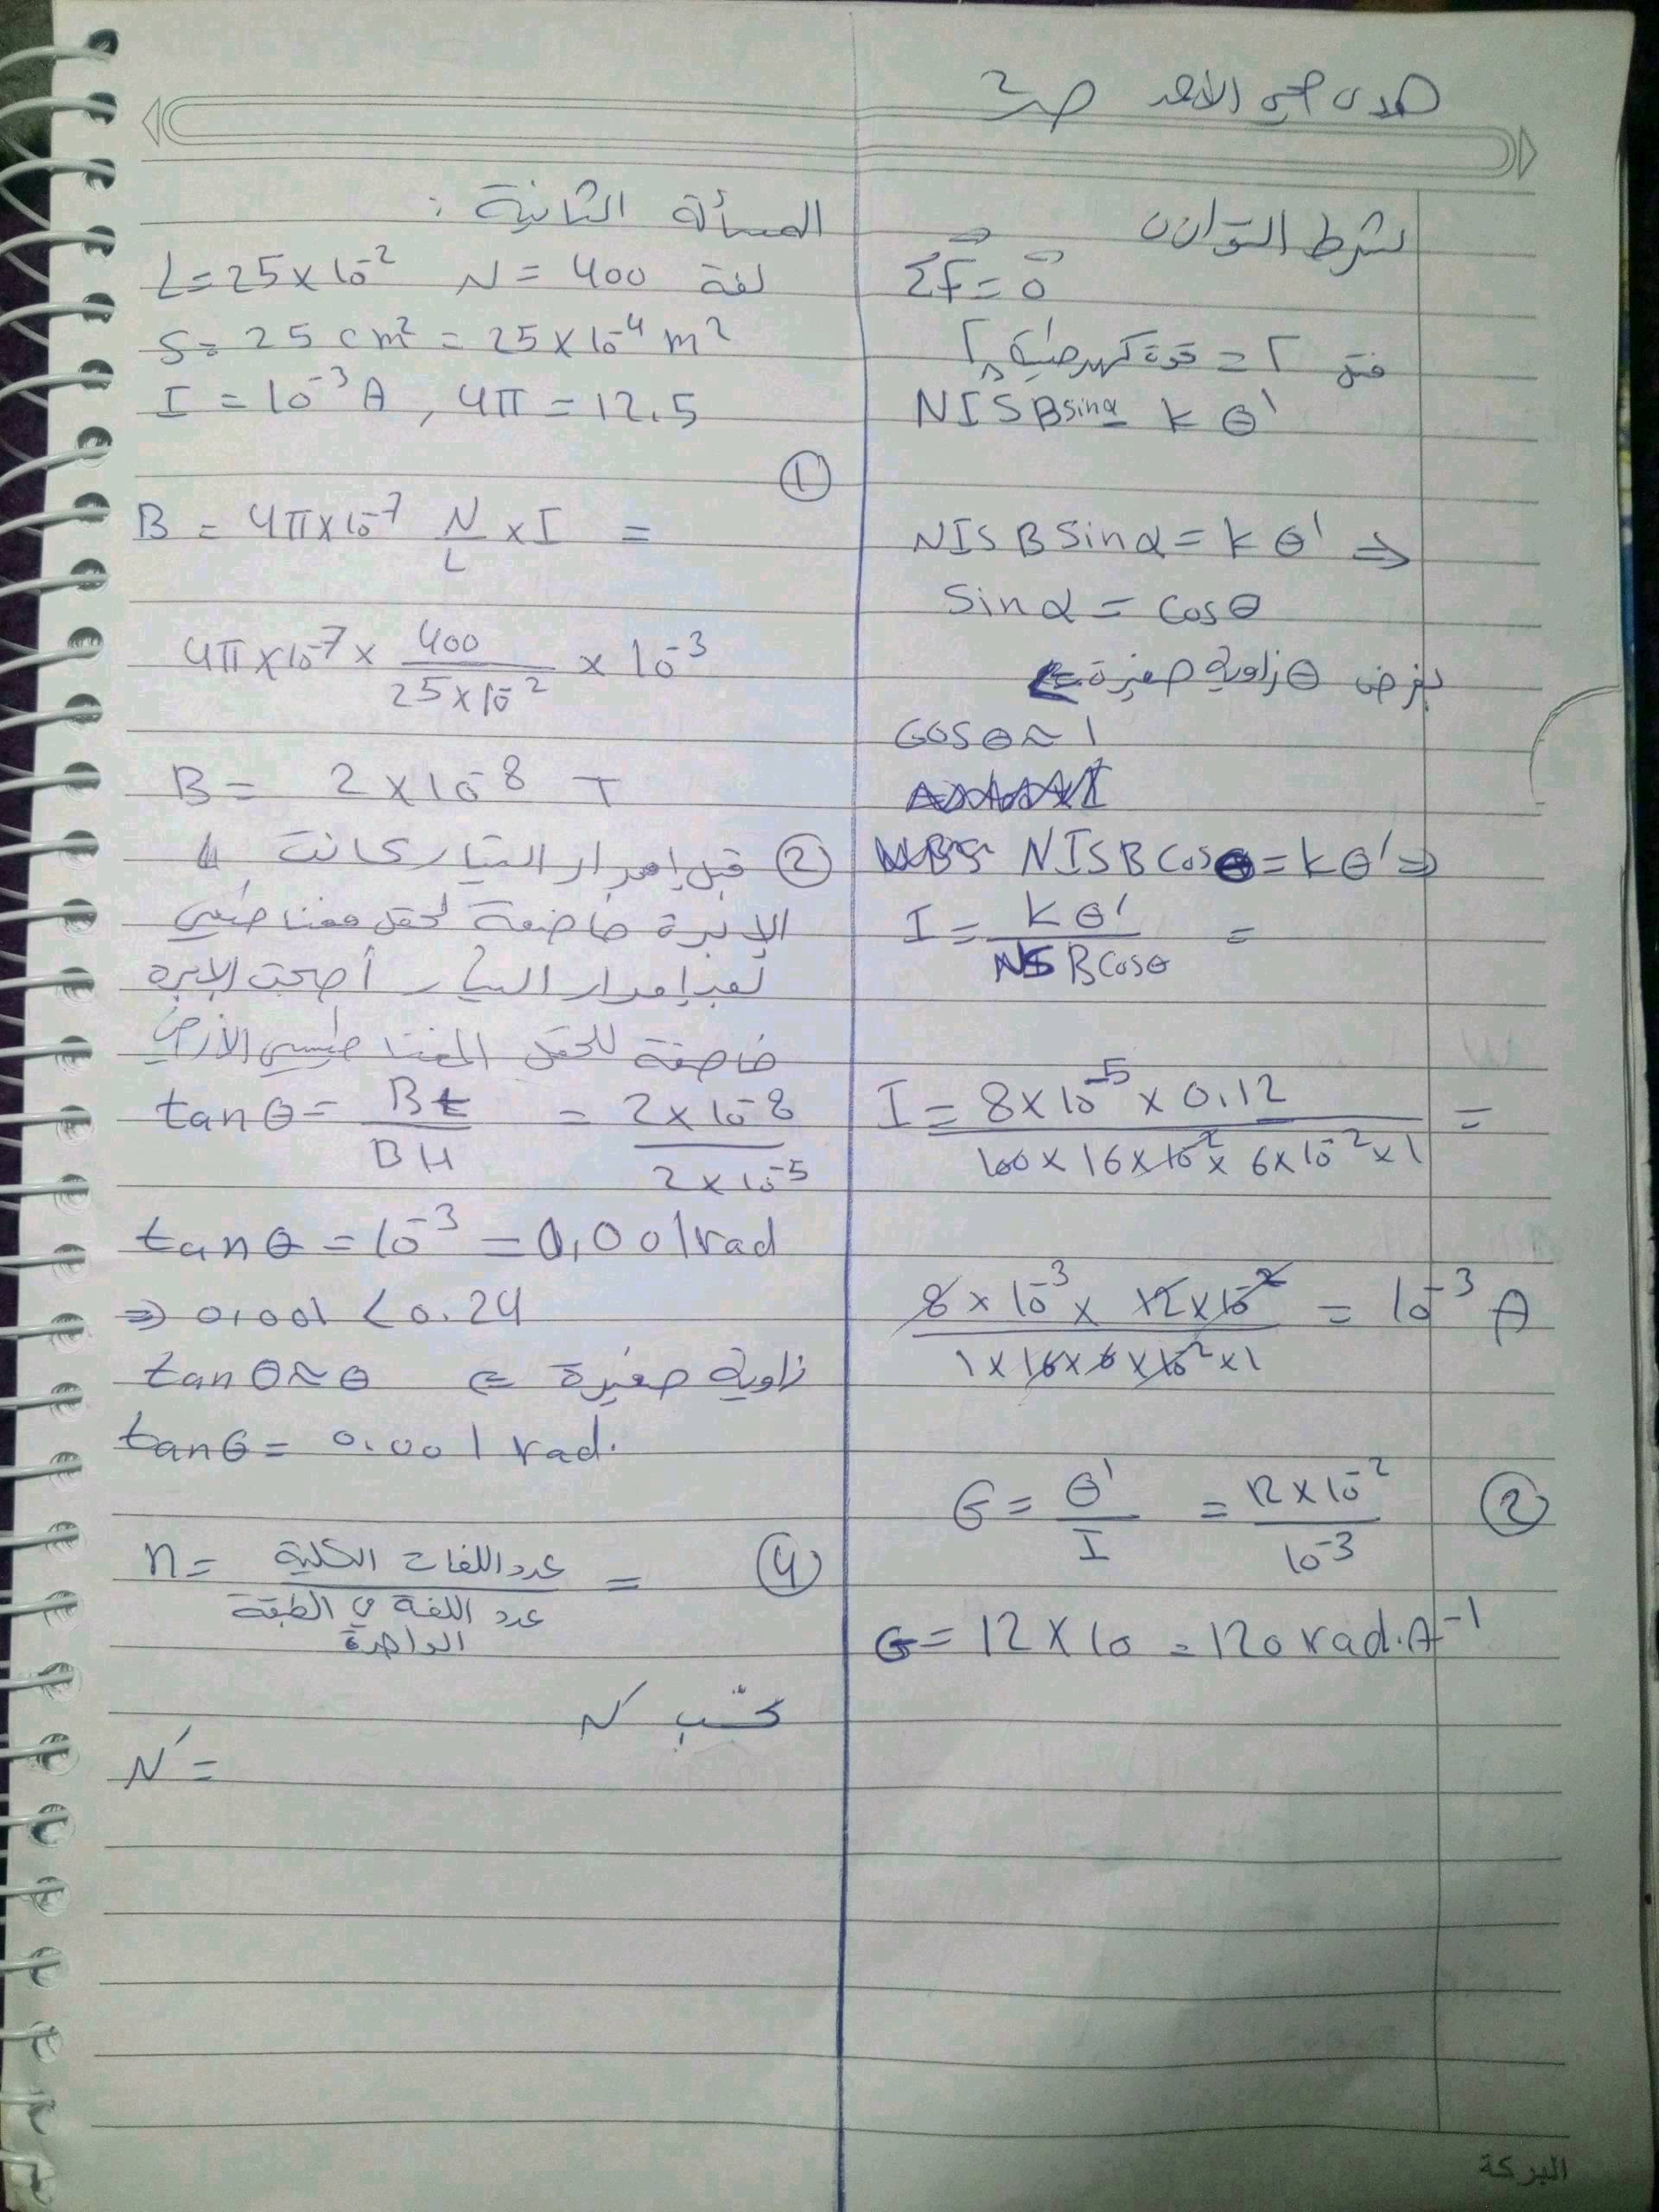 هدى الاحمد ص2
شرط التوازن
Σ F = 0
Γ فتل = Γ قوة كهرطيسية
NISB sinα = k θ'
NISB sinα = k θ' ⇒
sinα = cosθ
بفرض θ زاوية صغيرة ⇐
cosθ ≈ 1
NISB cosθ = kθ' ⇒
I = kθ' / NSB cosθ =
I = 8×10⁻⁵ × 0.12 / 100 × 16×10⁻² × 6×10⁻² × 1 =
8 × 10⁻³ × 12×10⁻² / 1×16×6×10⁻²×1 = 10⁻³ A
② G = θ' / I = 12×10⁻² / 10⁻³
G = 12 × 10 = 120 rad.A⁻¹
المسألة الثانية :
L = 25×10⁻² N = 400 لفة
S = 25 cm² = 25×10⁻⁴ m²
I = 10⁻³ A , 4π = 12.5
①
B = 4π×10⁻⁷ N/L × I =
4π×10⁻⁷ × 400 / 25×10⁻² × 10⁻³
B = 2×10⁻⁸ T
② قبل إمرار التيار كانت
الإبرة خاضعة لحقل مغناطيسي
بعد إمرار التيار أصبحت الإبرة
خاضعة للحقل المغناطيسي الأرضي
tanθ = Bt / BH = 2×10⁻⁸ / 2×10⁻⁵
tanθ = 10⁻³ = 0,001 rad
⇒ 0.001 < 0.24
tanθ ≈ θ ⇐ زاوية صغيرة
tanθ = 0.001 rad.
④ n = عدد اللفات الكلية / عدد اللفة في الطبقة الواحدة =
نحسب N'
N' =
البركة